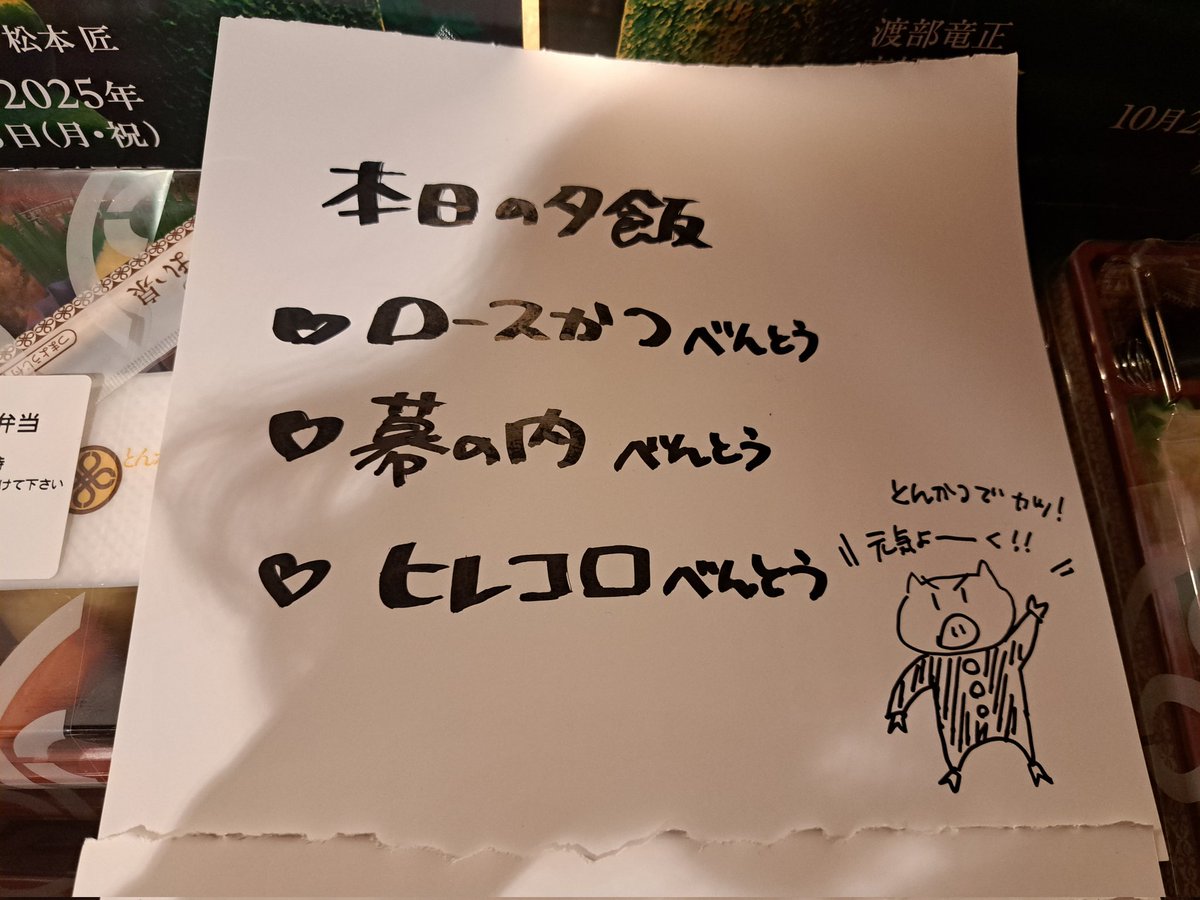 松本 匠
2025年
日(月・祝)
渡部竜正
10月2
本日の夕飯
♡ ロースかつべんとう
♡ 幕の内べんとう
♡ ヒレコロべんとう
とんかつでカツ!
元気よーく!!
まい泉
つまようじ
弁当
けて下さい
とんか